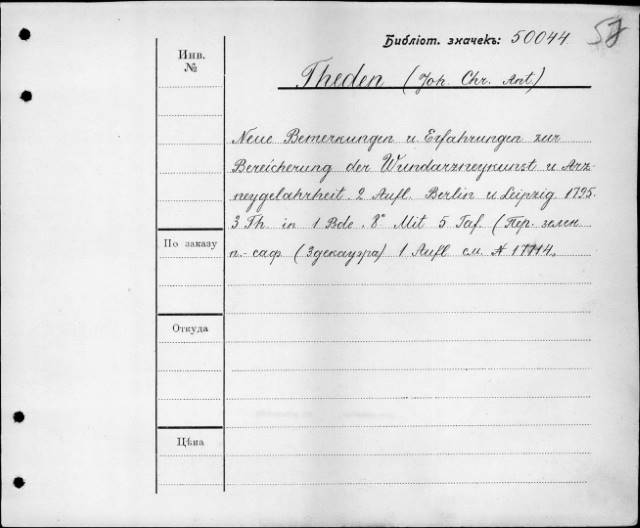 Библіот. значекъ: 50044
Инв. №
Theden (Joh. Chr. Ant.)
Neue Bemerkungen u Erfahrungen zur
Bereicherung der Wundarzneykunst u Arz-
neygelahrheit. 2 Aufl. Berlin u Leipzig 1795.
3 Th. in 1 Bde. 8° Mit 5 Taf. (Пер. зелен.
п.- саф (Здекауэра) 1 Aufl см. №
По заказу
Откуда
Цѣна